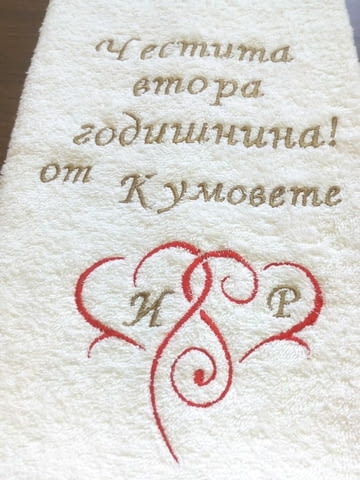 Честита
втора
годишнина!
от Кумовете
И Р